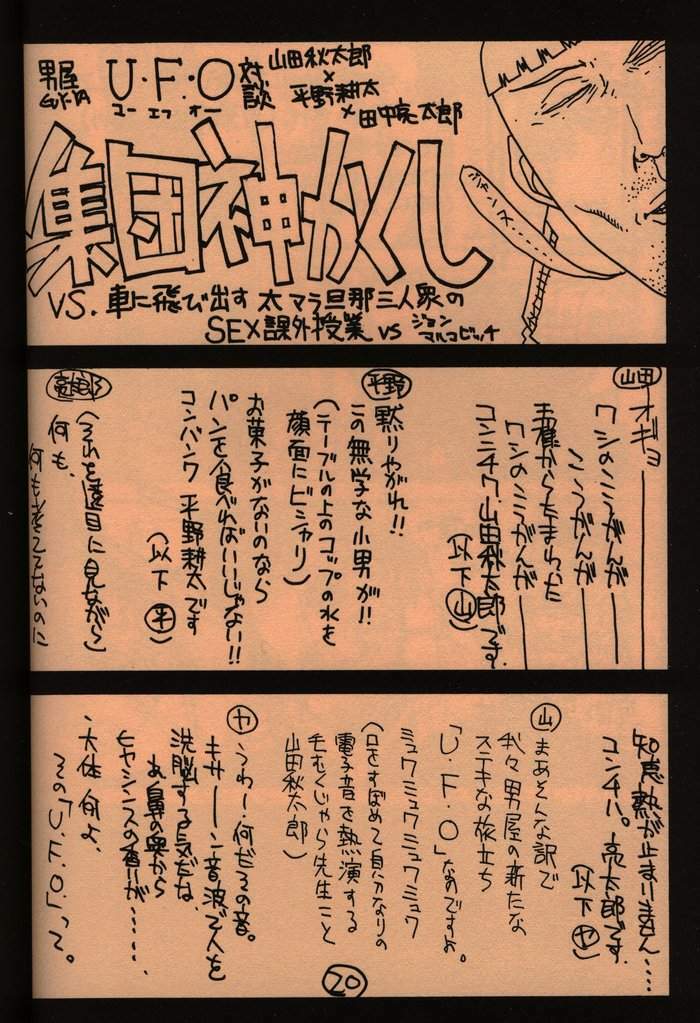 男屋
GUY-YA
U・F・O
ユー エフ オー
対談
山田秋太郎
×
平野耕太
×田中亮太郎
集団神かくし
VS. 車に飛び出す 太マラ旦那三人衆の
SEX課外授業 VS ジョン
マルコビッチ
ジャンヌ
山田
オギョ
ワシのこうがんが
こうがんが
王様からたまわった
ワシのこうがんが
コンニチワ、山田秋太郎です。
(以下 山)
平野
黙りやがれ!!
この無学な小男が!!
(テーブルの上のコップの水を
顔面にビシャリ)
お菓子がないのなら
パンを食べればいいじゃない!!
コンバンワ 平野耕太です
(以下 平)
亮太郎
(それを遠目に見ながら)
何も、
何も考えてないのに
知恵熱が止まりません……
コンチハ。亮太郎です。
(以下 ヤ)
山
まあそんな訳で
我々男屋の新たな
ステキな旅立ち
「U・F・O」なのですよ。
ミュウミュウミュウミュウ
(口をすぼめて自分なりの
電子音を熱演する
毛むくじゃら先生こと
山田秋太郎)
ヤ
うわー、何だその音。
キサーン音波で人を
洗脳する気だな、
お鼻の奥から
ヒヤシンスの香りが……、
、大体何よ、
その「U・F・O」って。
20